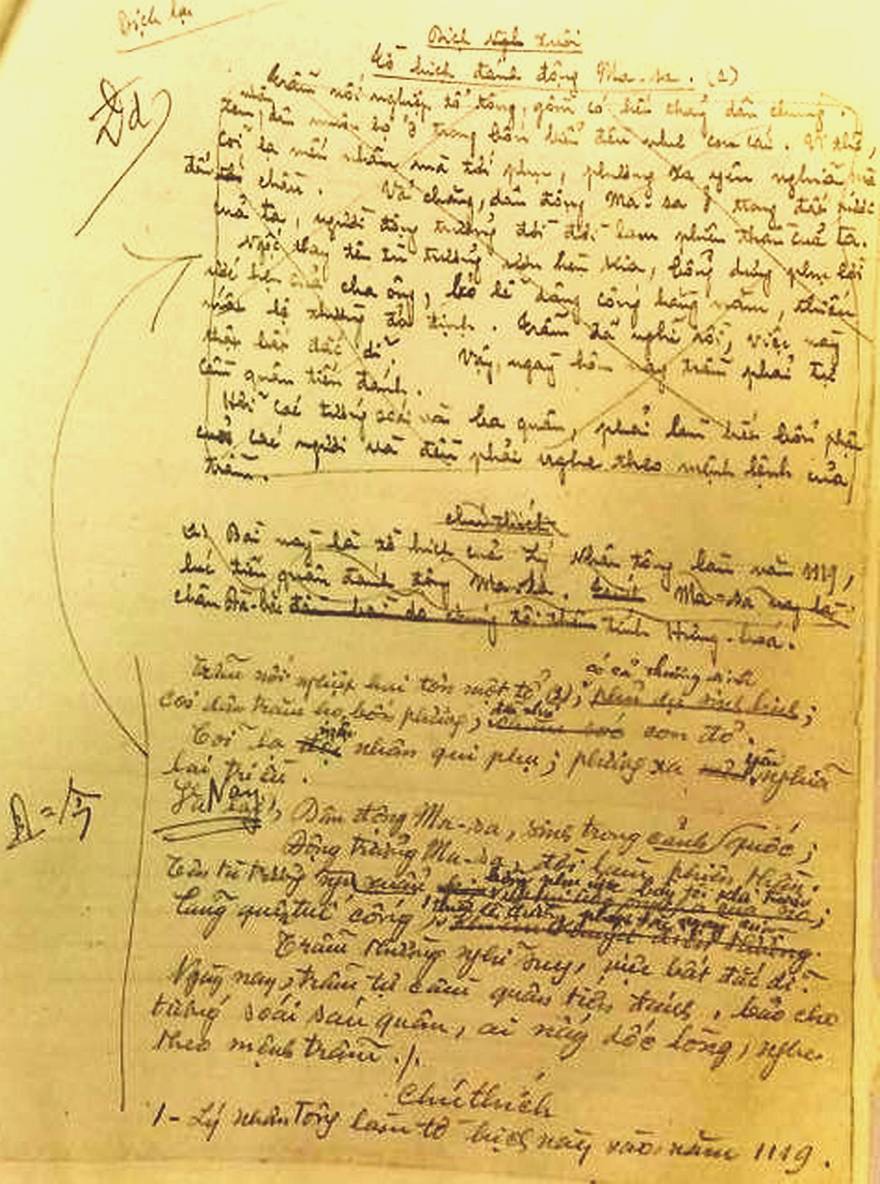 Dịch lại
Dịch nghĩa xuôi
Tờ hịch đánh động Ma-sa. (1)
Trẫm nối nghiệp tổ tông, gồm có hết thảy dân chúng.
xem dân muôn họ ở trong bốn biển đều như con cái. Vì thế,
cõi xa mến nhân mà tới phục, phương xa yên nghĩa mà
đến chầu. Vả chăng, dân động Ma-sa ở trong đất nước
của ta, người động trưởng đời đời làm phiên thần của ta.
Ngốc thay tên tù trưởng hèn kia, bỗng dưng phụ lời
ước hẹn của cha ông, bỏ lễ dâng cống hàng năm, thiếu
mất lệ thường đã định. Trẫm đã nghĩ rồi, việc này
thật bất đắc dĩ. Vậy, ngày hôm nay trẫm phải tự
cầm quân tiến đánh.
Hỡi các tướng soái và ba quân, phải làm hết bổn phận
các người và đều phải nghe theo mệnh lệnh của
trẫm.
chú thích
1) Bài này là tờ hịch của Lý Nhân tông làm năm 1119,
lúc tiến quân đánh động Ma-sa. Ma-sa nay là
châu Đà-bắc tỉnh Hưng-hoá.
có cả thường sinh
Trẫm nối nghiệp hai tôn một tổ (1);
Coi dân trăm họ bốn phương; con đỏ.
Cõi xa mến nhân qui phụ; phương xa yên nghĩa
lại triều.
Nay, Dân động Ma-sa, sinh trong cảnh quốc;
Động trưởng Ma-sa, đời làm phiên thần.
Tên tù trưởng
Trẫm thường nghĩ suy, thực bất đắc dĩ.
Ngày nay, trẫm tự cầm quân tiến đánh, bảo cho
tướng soái sáu quân, ai nấy dốc lòng, nghe
theo mệnh trẫm./.
Chú thích
1- Lý nhân Tông làm tờ hịch này vào năm 1119.